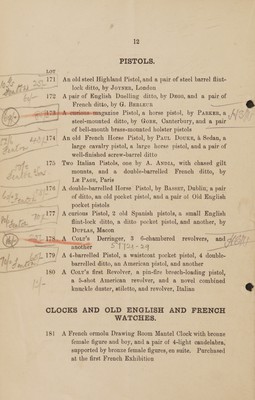 12
PISTOLS.
LOT
171 An old steel Highland Pistol, and a pair of steel barrel flint-
lock ditto, by JOYNER, London
172 A pair of English Duelling ditto, by DEGG, and a pair of
French ditto, by G. BERLEUR
173 A curious magazine Pistol, a horse pistol, by PARKES, a
steel-mounted ditto, by GORE, Canterbury, and a pair
of bell-mouth brass-mounted holster pistols
174 An old French Horse Pistol, by PAUL DOUKE, à Sedan, a
large cavalry pistol, a large horse pistol, and a pair of
well-finished screw-barrel ditto
175 Two Italian Pistols, one by A. ANDIA, with chased gilt
mounts, and a double-barrelled French ditto, by
LE PAGE, Paris
176 A double-barrelled Horse Pistol, by BASSET, Dublin, a pair
of ditto, an old pocket pistol, and a pair of Old English
pocket pistols
177 A curious Pistol, 2 old Spanish pistols, a small English
flint-lock ditto, a ditto pocket pistol, and another, by
DUPLAS, Macon
178 A COLT'S Derringer, 3 6-chambered revolvers, and
another
179 A 4-barrelled Pistol, a waistcoat pocket pistol, 4 double-
barrelled ditto, an American pistol, and another
180 A COLT'S first Revolver, a pin-fire breech-loading pistol,
a 5-shot American revolver, and a novel combined
knuckle duster, stiletto, and revolver, Italian
CLOCKS AND OLD ENGLISH AND FRENCH
WATCHES.
181 A French ormolu Drawing Room Mantel Clock with bronze
female figure and boy, and a pair of 4-light candelabra,
supported by bronze female figures, en suite. Purchased
at the first French Exhibition